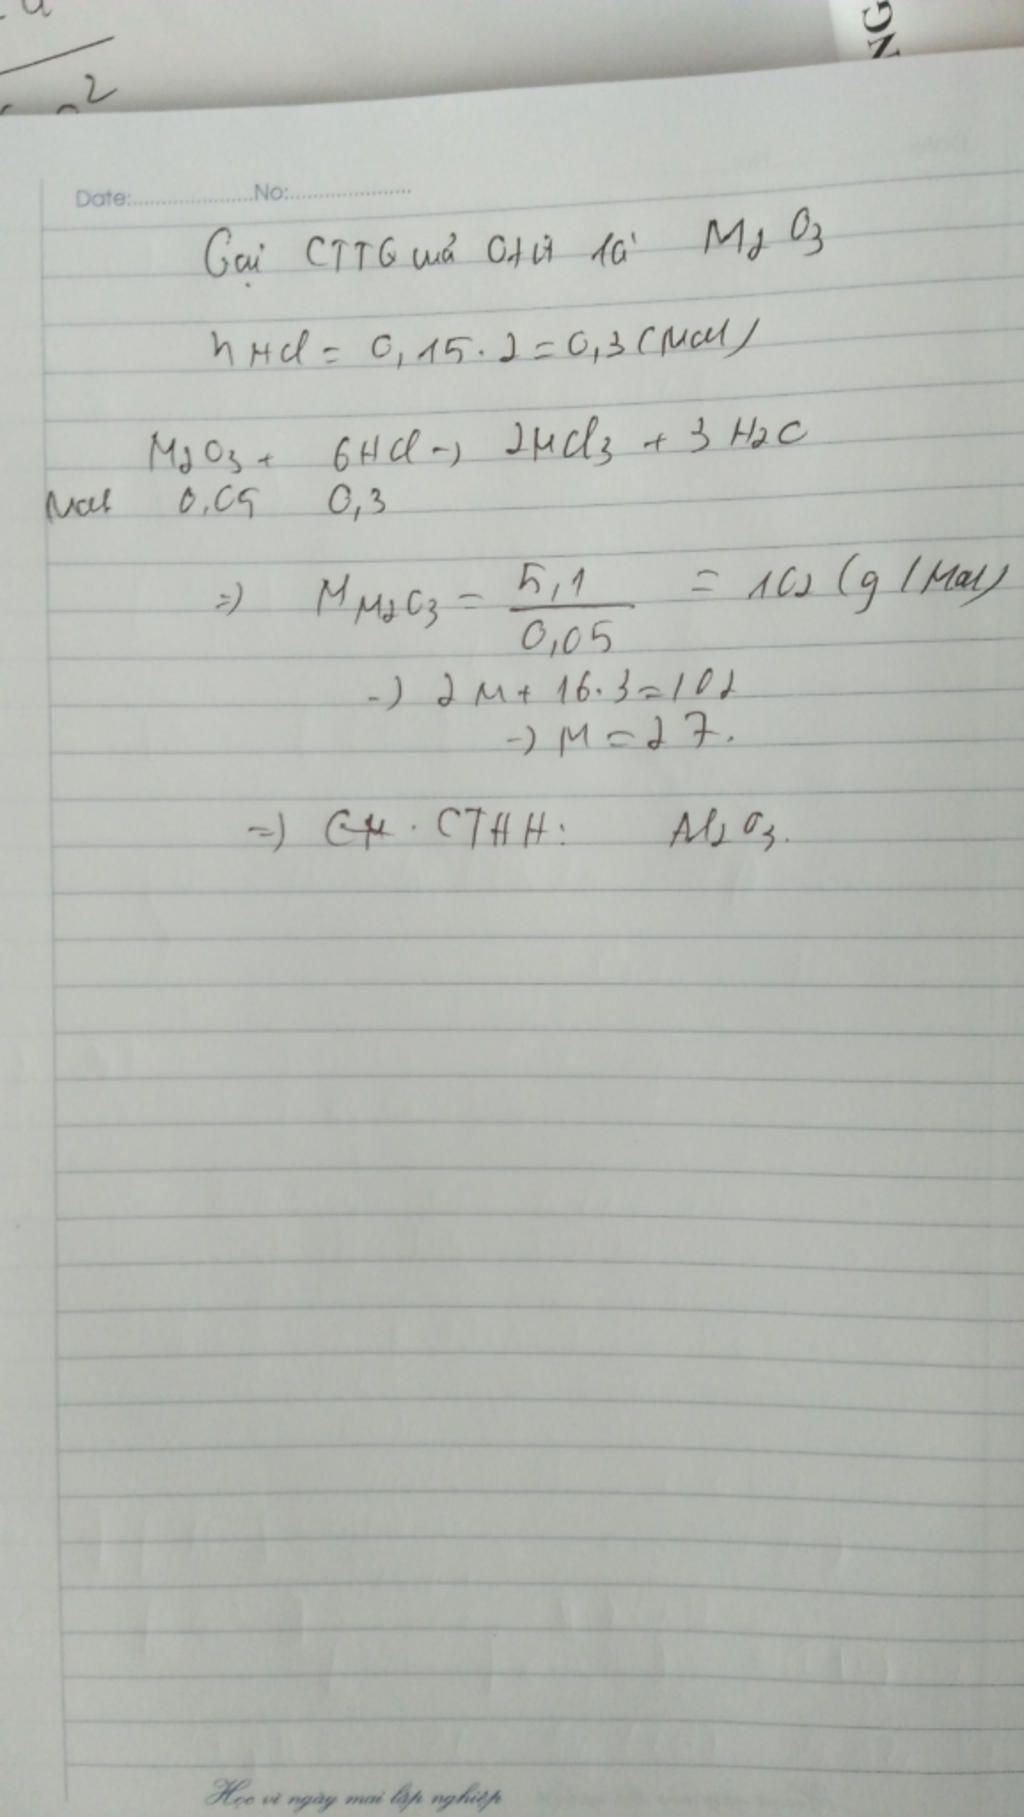 NG
2
Date:....................No:....................
Gọi CTTQ của oxit là M2O3
nHCl = 0,15.2 = 0,3 (Mol)
M2O3 + 6HCl → 2MCl3 + 3H2O
Mol 0,05 0,3
=) M M2O3 = 5,1 / 0,05 = 102 (g/Mol)
→ 2M + 16.3 = 102
→ M = 27.
=) CTHH: Al2O3.
Học vì ngày mai lập nghiệp